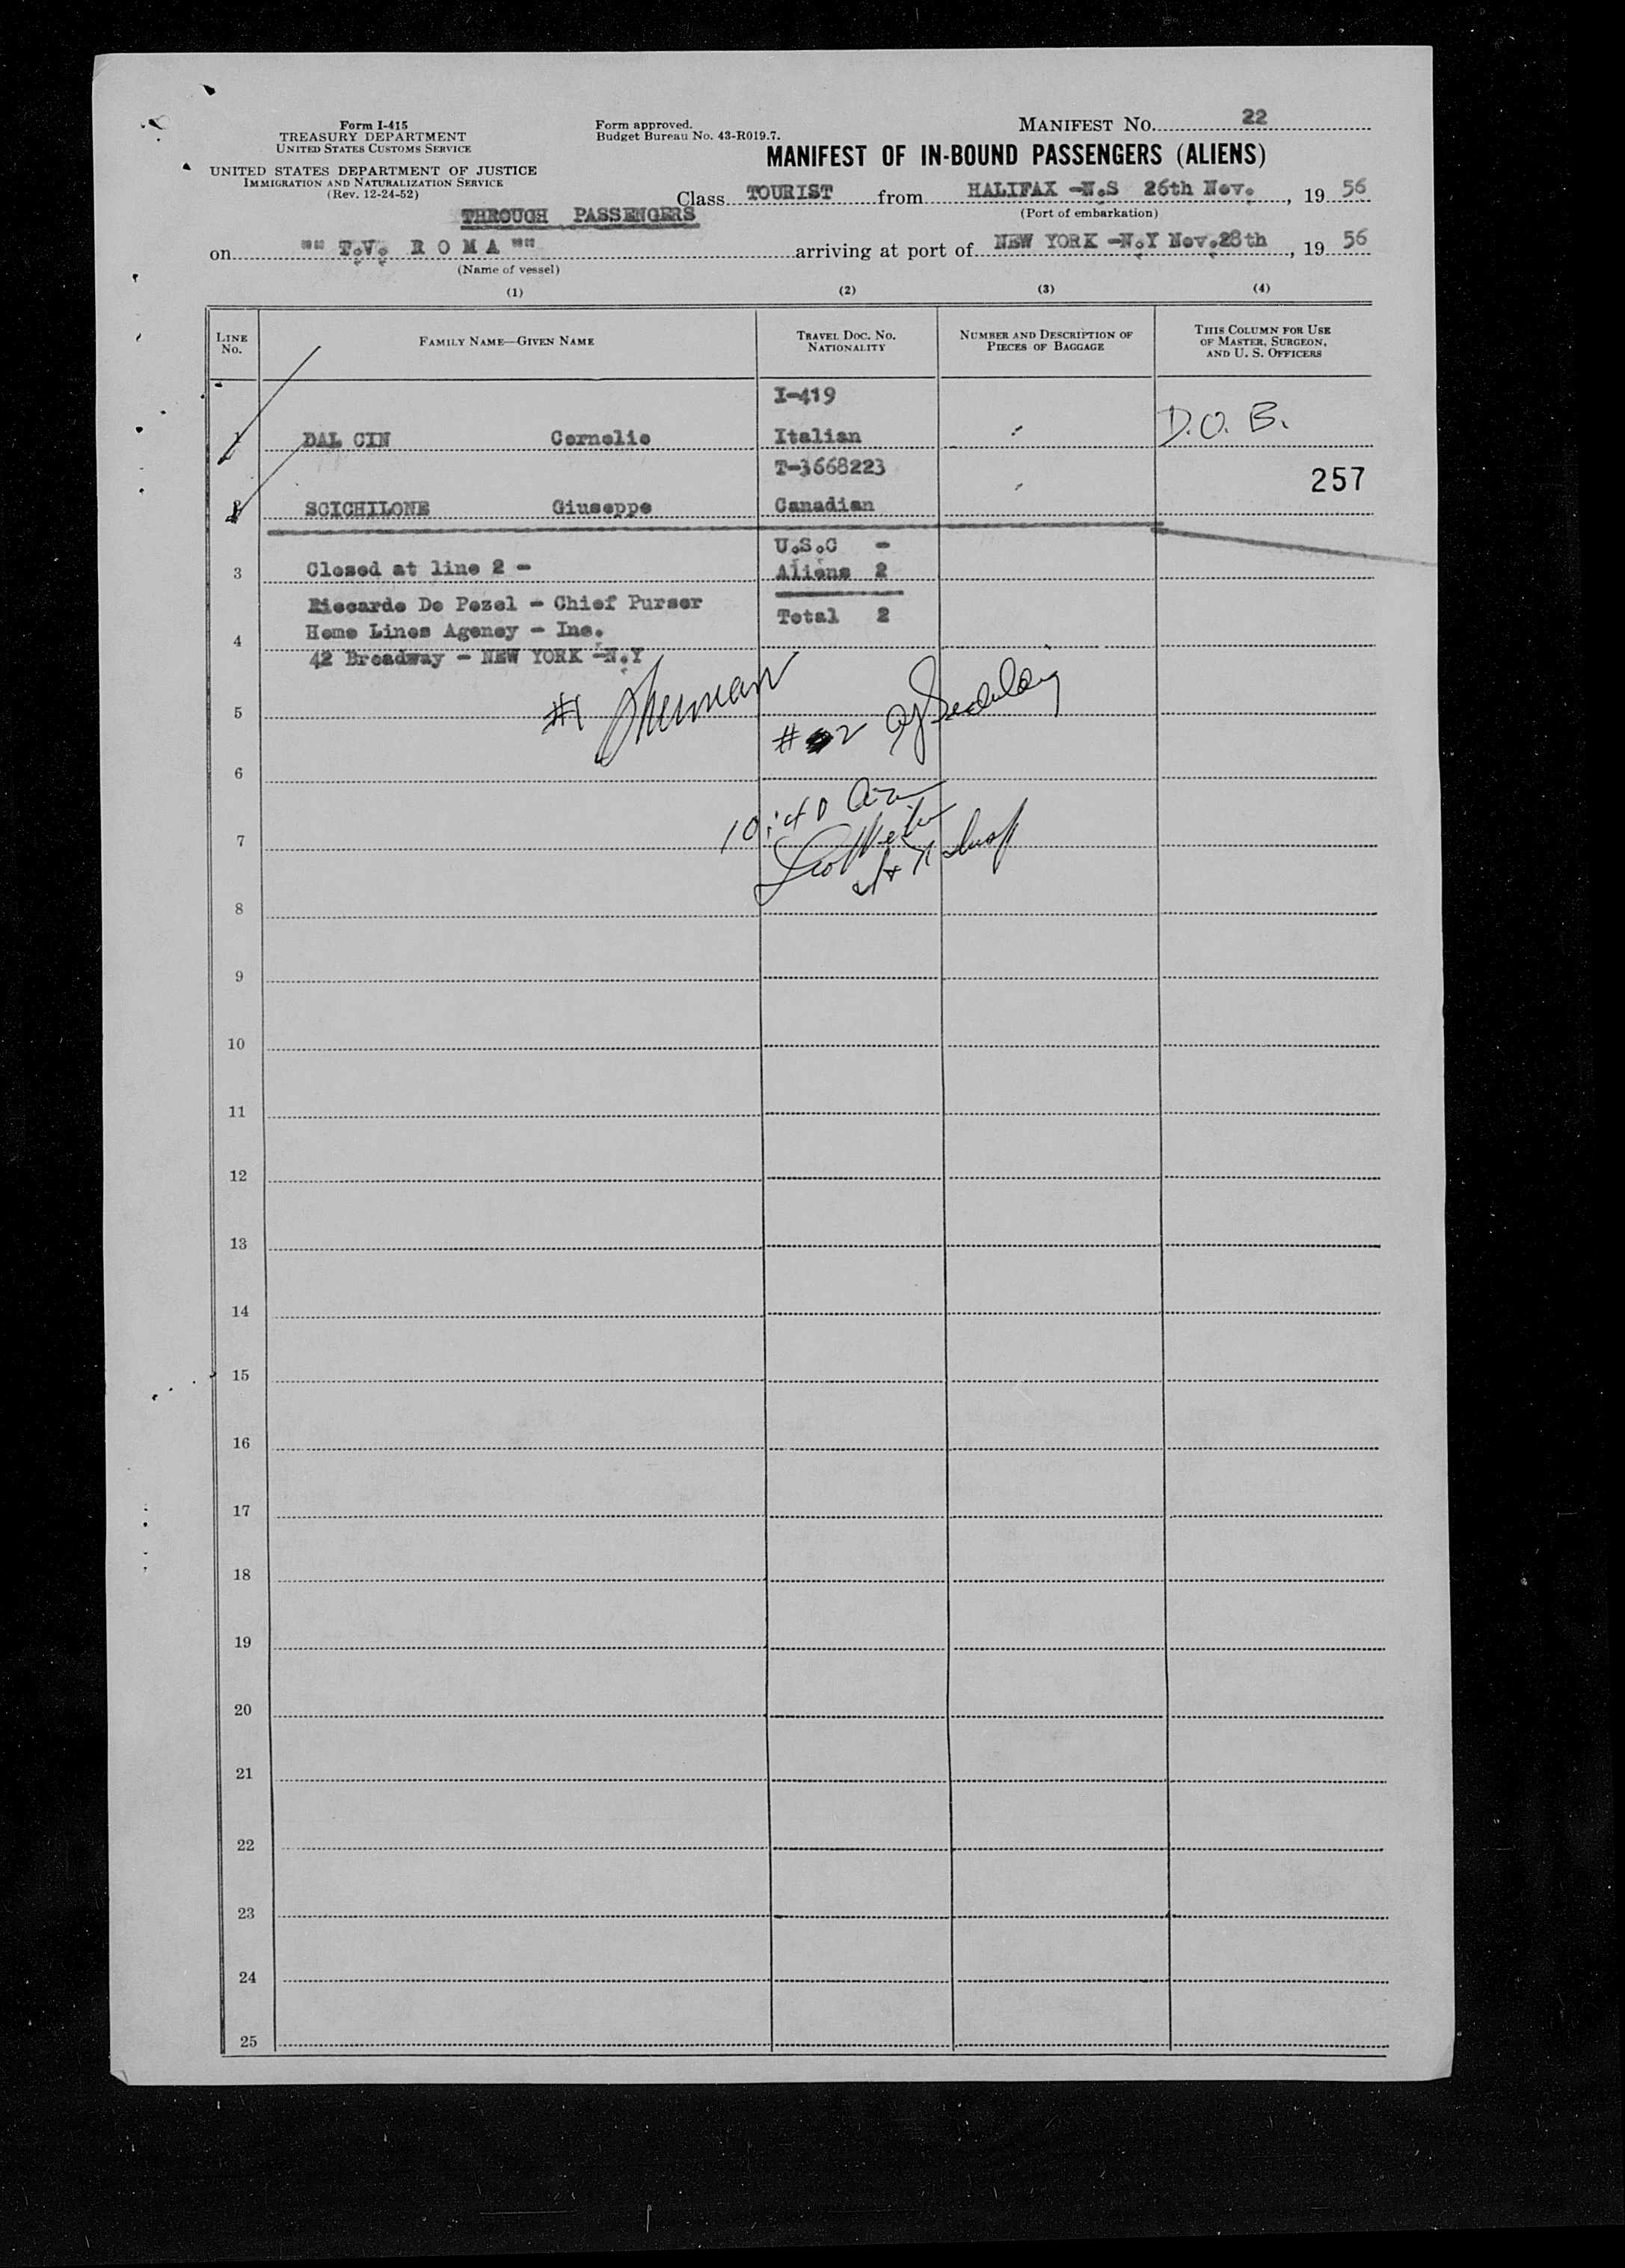 Form I-415
TREASURY DEPARTMENT
UNITED STATES CUSTOMS SERVICE
UNITED STATES DEPARTMENT OF JUSTICE
IMMIGRATION AND NATURALIZATION SERVICE
(Rev. 12-24-52)
Form approved.
Budget Bureau No. 43-R019.7.
MANIFEST No. 22
MANIFEST OF IN-BOUND PASSENGERS (ALIENS)
Class TOURIST from HALIFAX -N.S 26th Nov. , 19 56
(Port of embarkation)
THROUGH PASSENGERS
on "" T.V. R O M A "" arriving at port of NEW YORK -N.Y Nov.28th , 19 56
(Name of vessel)
(1) (2) (3) (4)
LINE No. FAMILY NAME—GIVEN NAME TRAVEL DOC. No. NATIONALITY NUMBER AND DESCRIPTION OF PIECES OF BAGGAGE THIS COLUMN FOR USE OF MASTER, SURGEON, AND U. S. OFFICERS
I-419
1 DAL CIN Cornelio Italian D.O.B.
T-3668223
257
2 SCICHILONE Giuseppe Canadian
U.S.C -
3 Closed at line 2 - Aliens 2
Riccardo De Pozel - Chief Purser
Total 2
4 Home Lines Agency - Inc.
42 Broadway - NEW YORK -N.Y
#1 Sherman
5
#2
6
10:40 am
7
8
9
10
11
12
13
14
15
16
17
18
19
20
21
22
23
24
25